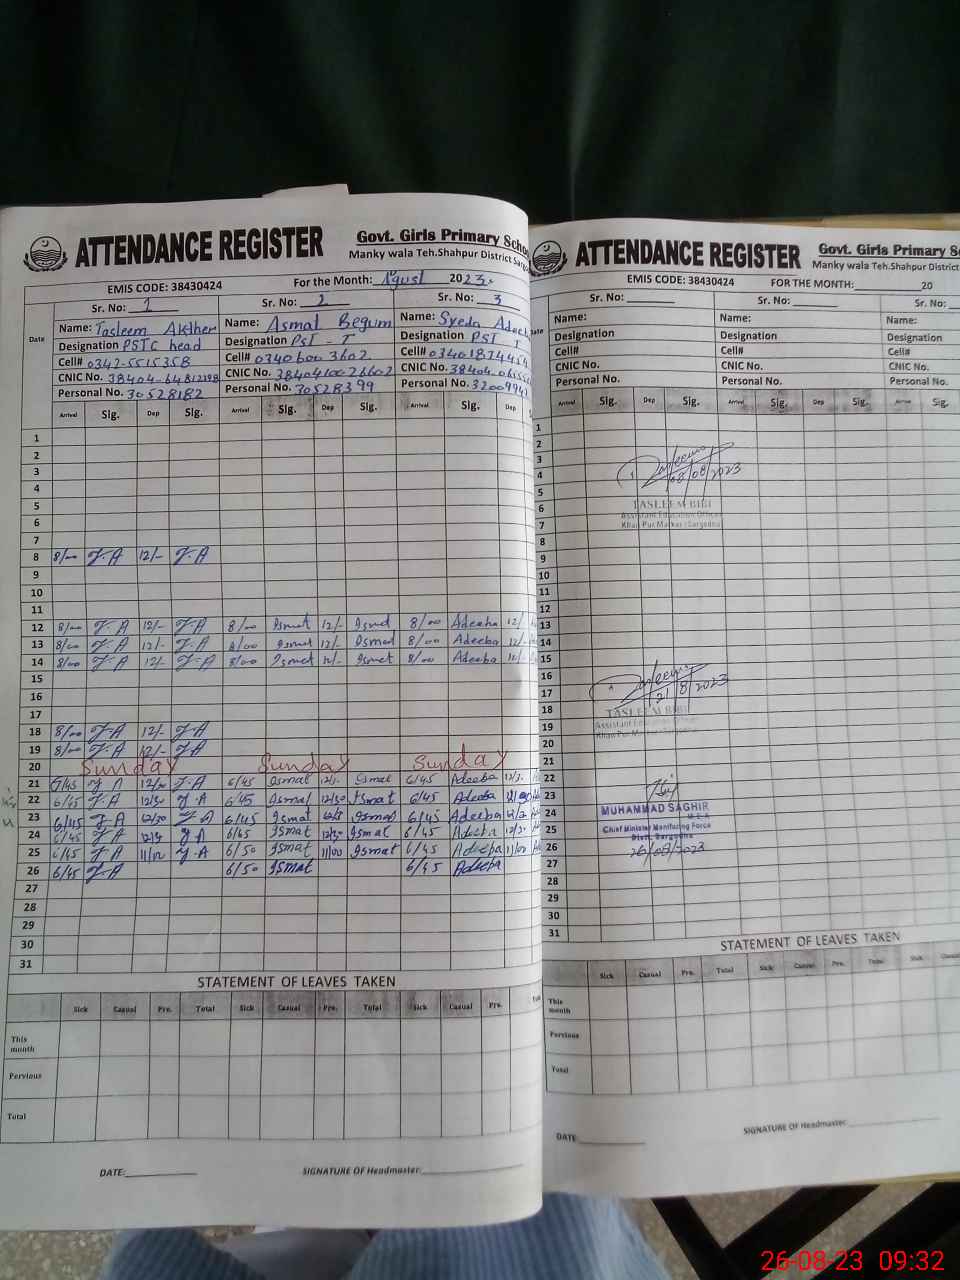 ATTENDANCE REGISTER
Govt. Girls Primary
Manky wala Teh.Shahpur District
EMIS CODE: 38430424
For the Month: Agust 2023
Sr. No: 1
Sr. No: 2
Sr. No: 3
Date
Name: Tasleem Akhter
Name: Asmal Begum
Name: Syeda
Designation PSTC head
Designation PSt - T
Designation PST T
Cell# 0347-5515358
Cell# 03406003602
Cell#
CNIC No.
CNIC No.
CNIC No.
Personal No. 30528182
Personal No. 30528399
Personal No.
Arrival Sig. Dep Sig. Arrival Sig. Dep Sig. Arrival Sig. Dep
1
2
3
4
5
6
7
8 8/00 T-A 12/- T-A
9
10
11
12 8/00 T-A 12/- T-A 8/00 Ismat 12/- Ismat 8/00 Adeeba 12/
13 8/00 T-A 12/- T-A 8/00 Ismat 12/- Ismat 8/00 Adeeba 12/-
14 8/00 T-A 12/- T-A 8/00 Ismat Ismat 8/00 Adeeba 12/-
15
16
17
18 8/00 T-A 12/- T-A
19 8/00 T-A 12/- T-A
20 Sunday Sunday Sunday
21 12/30 T-A 6/45 Ismat Ismat 6/45 Adeeba
22 6/45 T-A 12/30 T-A 6/45 Ismat 12/30 Ismat 6/45 Adeeba
23 6/45 T-A 12/30 T-A 6/45 Ismat Ismat 6/45 Adeeba
24 6/45 T-A T-A 6/45 Ismat 12/30 Ismat 6/45 Adeeba
25 6/45 T-A T-A 6/50 Ismat 11/00 Ismat 6/45 Adeeba
26 6/45 T-A 6/50 Ismat 6/45 Adeeba
27
28
29
30
31
STATEMENT OF LEAVES TAKEN
Sick Casual Pre. Total Sick Casual Pre. Total Sick Casual Pre.
This month
Pervious
Total
DATE:
SIGNATURE OF Headmaster:
ATTENDANCE REGISTER
Govt. Girls Primary
Manky wala Teh.Shahpur District
EMIS CODE: 38430424
FOR THE MONTH: 20
Sr. No:
Sr. No:
Sr. No:
Name:
Name:
Name:
Designation
Designation
Designation
Cell#
Cell#
Cell#
CNIC No.
CNIC No.
CNIC No.
Personal No.
Personal No.
Personal No.
Arrival Sig. Dep Sig. Arrival Sig. Dep Sig. Arrival Sig.
1
2
3
4
5
6
7
8
9
10
11
12
13
14
15
16
17
18
19
20
21
22
23
24
25
26
27
28
29
30
31
Tasleem
08/08/2023
TASLEEM BIBI
Assistant Education Officer
Khan Pur Markaz (Sargodha)
Tasleem
21/8/2023
TASLEEM BIBI
Assistant Education Officer
Khan Pur Markaz
MUHAMMAD SAGHIR
M.E.A
Chief Minister Monitoring Force
Distt. Sargodha
26/08/2023
STATEMENT OF LEAVES TAKEN
Sick Casual Pre. Total Sick Casual Pre. Total Sick
This month
Pervious
Total
DATE
SIGNATURE OF Headmaster
26-08-23 09:32